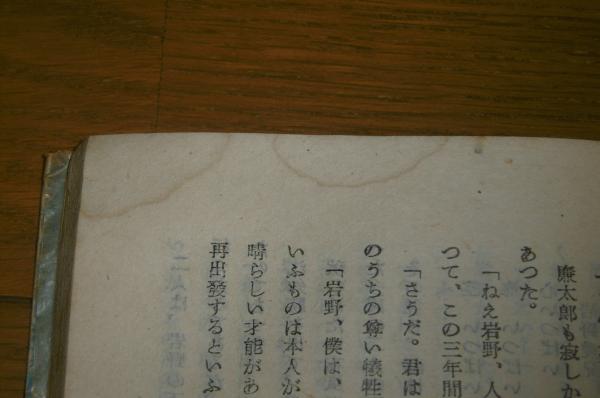 廉太郎も寂しか
あつた。
「ねえ岩野、人
つて、この三年間
「さうだ。君は
のうちの尊い犠牲
「岩野、僕は、
いふものは本人が
晴らしい才能があ
再出發するといふ